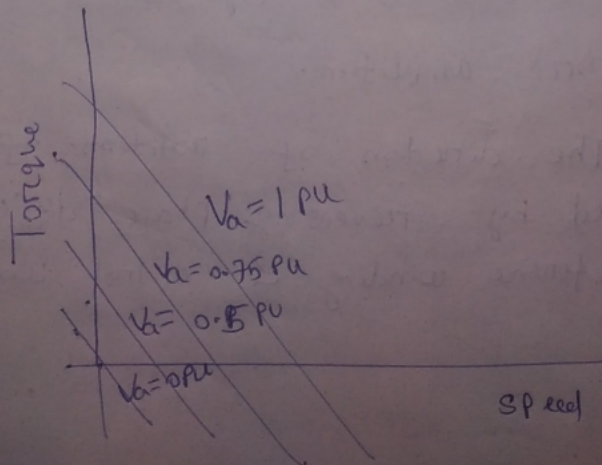 Torque
Va = 1 PU
Va = 0.75 PU
Va = 0.5 PU
Va = 0 PU
Speed